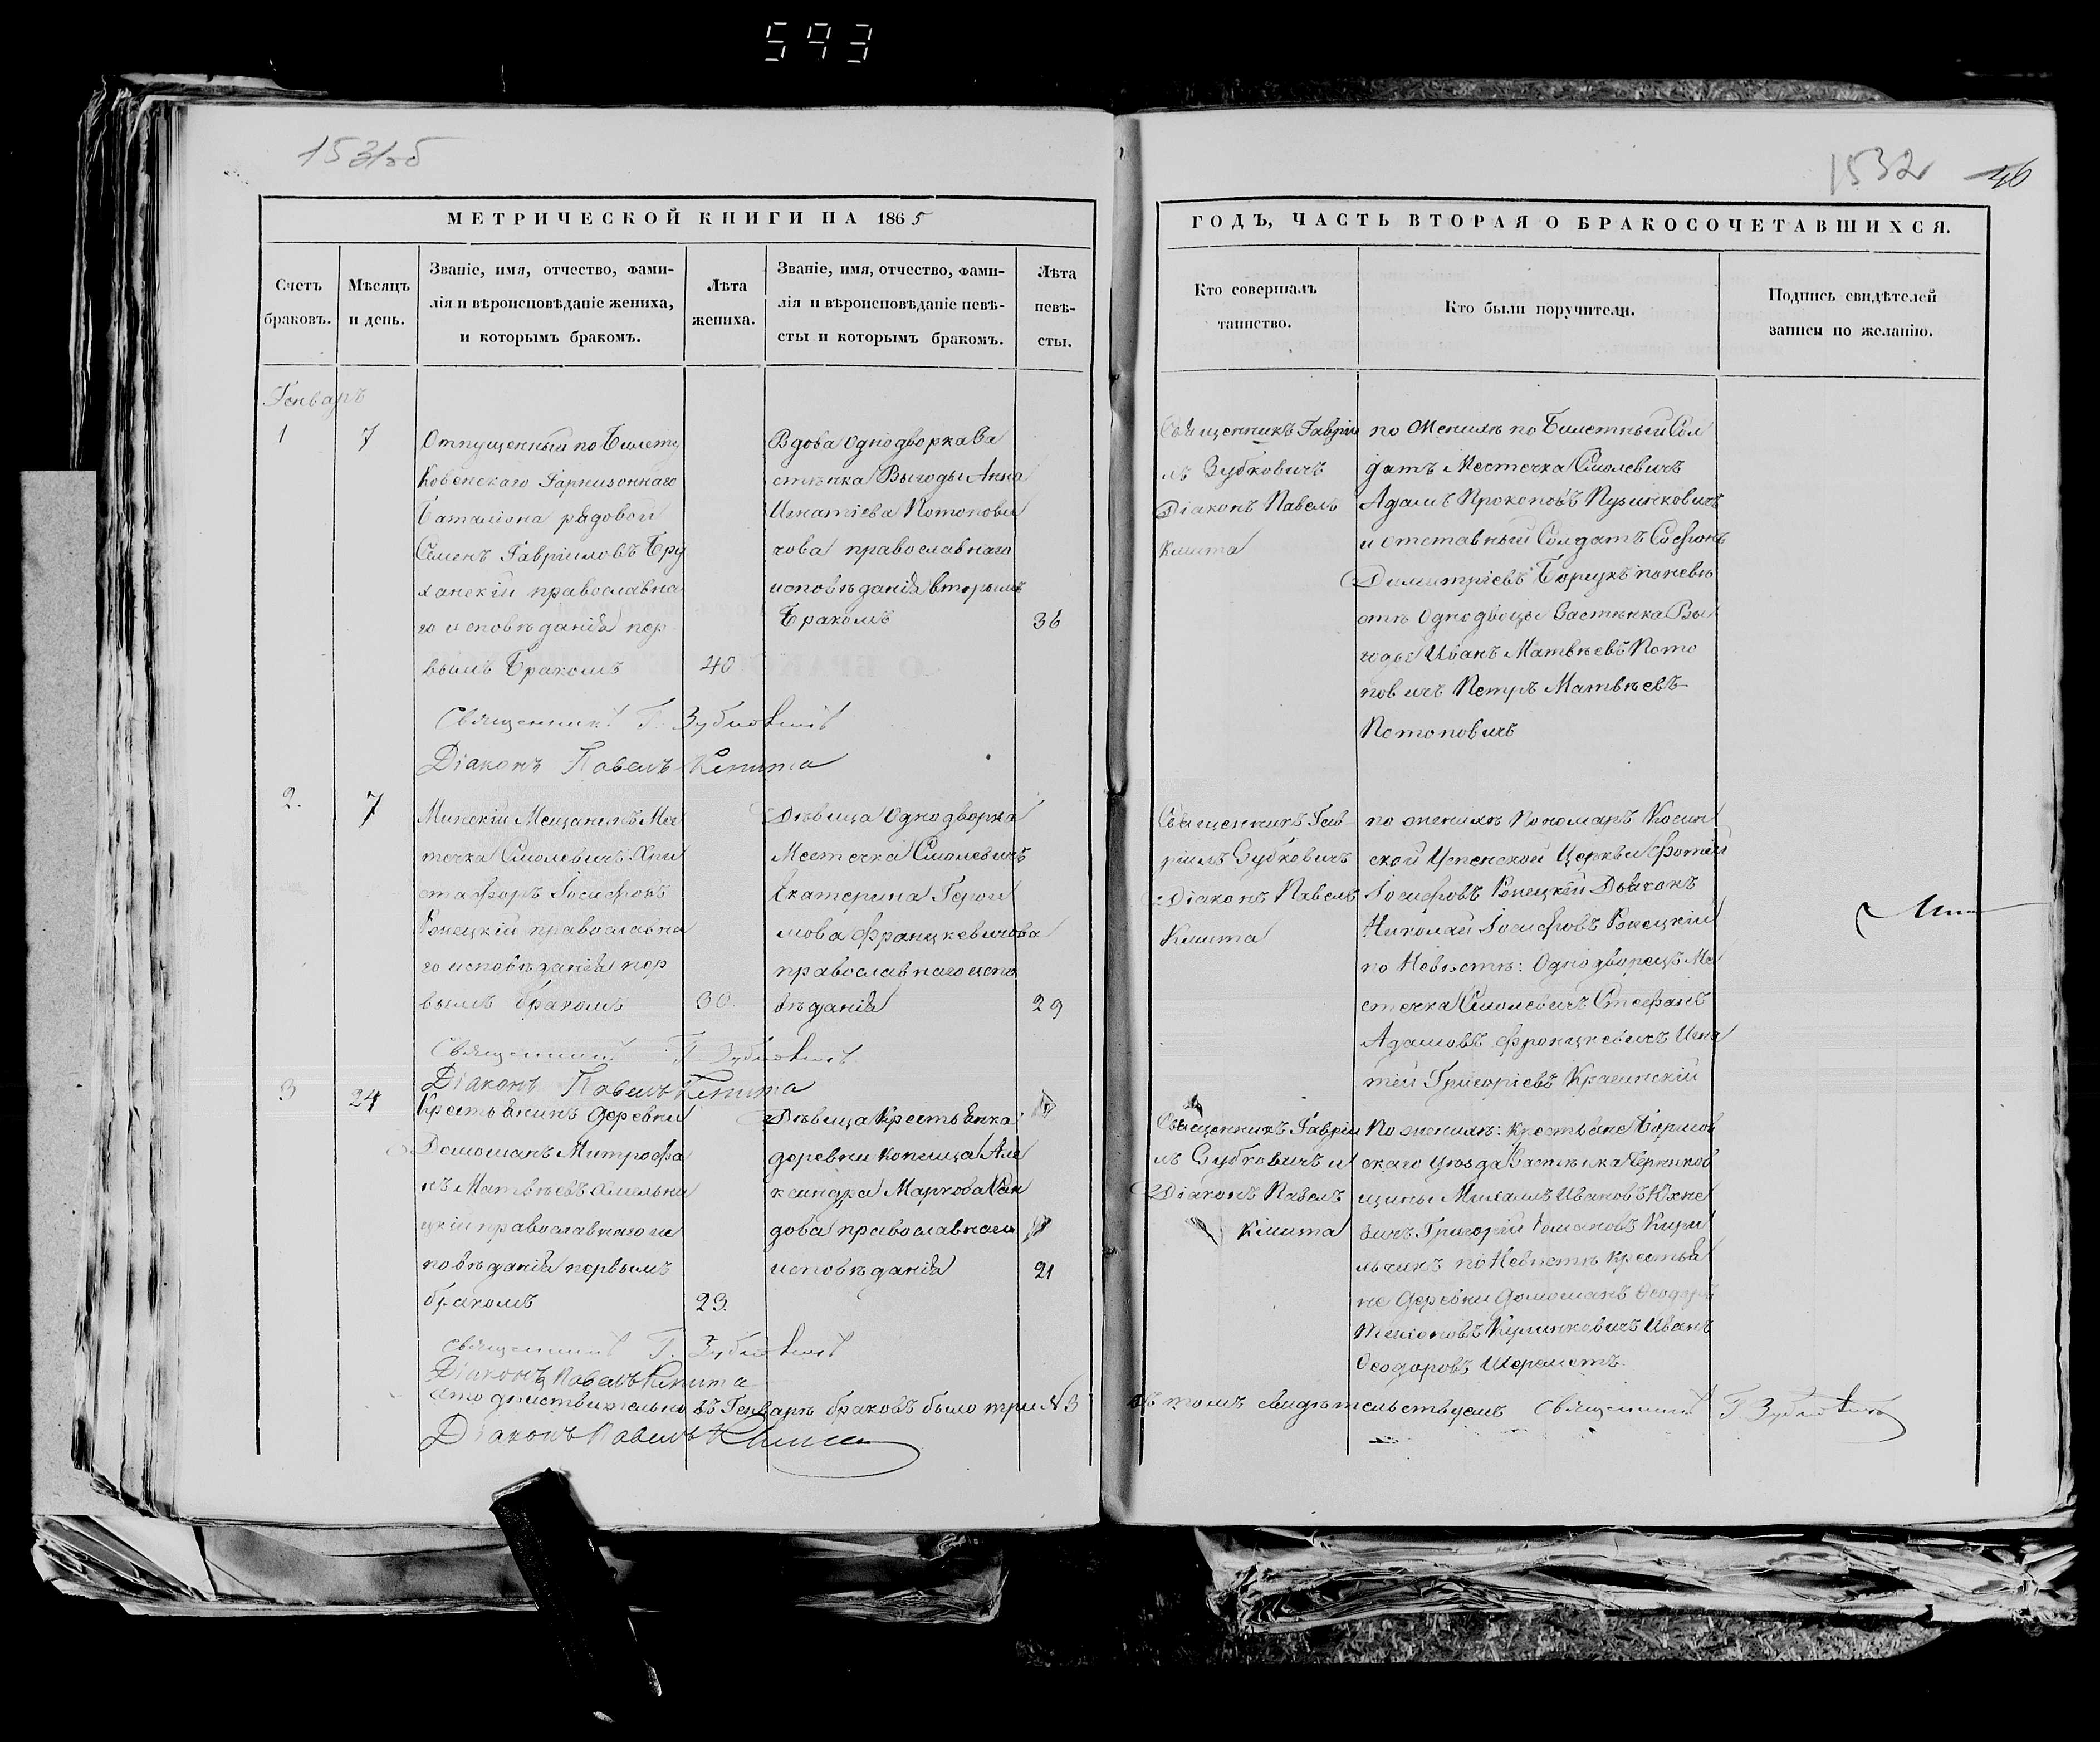 593
1531об
1532
46
МЕТРИЧЕСКОЙ КНИГИ НА 1865
ГОДЪ, ЧАСТЬ ВТОРАЯ О БРАКОСОЧЕТАВШИХСЯ.
Счетъ
браковъ.
Мѣсяцъ
и день.
Званіе, имя, отчество, фами-
лія и вѣроисповѣданіе жениха,
и которымъ бракомъ.
Лѣта
жениха.
Званіе, имя, отчество, фами-
лія и вѣроисповѣданіе невѣ-
сты и которымъ бракомъ.
Лѣта
невѣ-
сты.
Кто совершалъ
таинство.
Кто были поручители.
Подпись свидѣтелей
записи по желанію.
Генварь
1
7
Отпущенный по Билету
Ковенскаго Гарнизоннаго
Баталіона рядовой
Семенъ Гавріиловъ Бру
ханскій православна
го исповѣданія пер
вымъ Бракомъ
40
Вдова Однодворка За
стѣнка Выгоды Анна
Игнатіева Потопови
чова православнаго
исповѣданія вторымъ
Бракомъ
36
Священникъ Гавріи
лъ Зубковичъ
Діаконъ Павелъ
Кмита
по Женихѣ по Билетный Сол
датъ Местечка Смолевичъ
Адамъ Прокоповъ
и отставный Солдатъ
Димитріевъ по невѣ
стѣ Однодворцы Застѣнка Вы
годы Иванъ Матвѣевъ Пото
повичъ Петръ Матвѣевъ
Потоповичъ
Священникъ Г. Зубковичъ
Діаконъ Павелъ Кмита
2.
7
Минскій Мещанинъ Мес
течка Смолевичъ Хри
стафоръ Іосифовъ
Рѣпецкій православна
го исповѣданія пер
вымъ Бракомъ
30.
Дѣвица Однодворка
Местечка Смолевичъ
Екатерина Герони
мова Францкевичова
православнаго испо
вѣданія
29
Священникъ Гав-
ріилъ Зубковичъ
Діаконъ Павелъ
Кмита
по женихѣ Пономаръ Косин
ской Успенской Церкви Фотій
Іосифовъ Рѣпецкій Дьячокъ
Николай Іосифовъ Рѣпецкій
по Невѣстѣ: Однодворецъ Ме
стечка Смолевичъ Стефанъ
Адамовъ Францкевичъ Игна
тій Григоріевъ Красинскій
Священникъ Г. Зубковичъ
Діаконъ Павелъ Кмита
3
24
Крестьянинъ Деревни
Домошанъ Митрофа
нъ Матвѣевъ Хмельни
цкій православнаго ис
повѣданія первымъ
бракомъ
23.
Дѣвица Крестьянка
деревни Коплища Але
ксандра Маркова
дова православнаго
исповѣданія
21
Священникъ Гавріи
лъ Зубковичъ и
Діаконъ Павелъ
Кмита
По женихѣ: крестьяне Борисов
скаго Уѣзда Застѣнка Черников
щины Михаилъ Ивановъ Юхне
вичъ Григорій Романовъ Кири
льчикъ по Невѣстѣ Крестья
не Деревни Домошанъ Ѳеодоръ
Иванъ
Ѳеодоровъ Шереметъ.
Священникъ Г. Зубковичъ
Діаконъ Павелъ Кмита
Что дѣйствительно въ Генварѣ браковъ было три №3
въ томъ свидѣтельствуемъ Священникъ Г. Зубковичъ
Діаконъ Павелъ Кмита